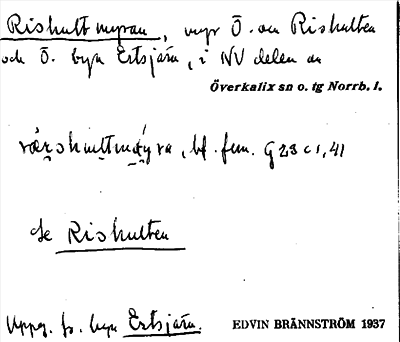 Rishultmyran, myr Ö. om Rishulten
och Ö. byn Ertsjärn, i NV delen av
Överkalix sn o. tg Norrb. l.
bf. fem. G 23 c 1, 41
Se Rishulten
Uppg. fr. byn Ertsjärn.
EDVIN BRÄNNSTRÖM 1937